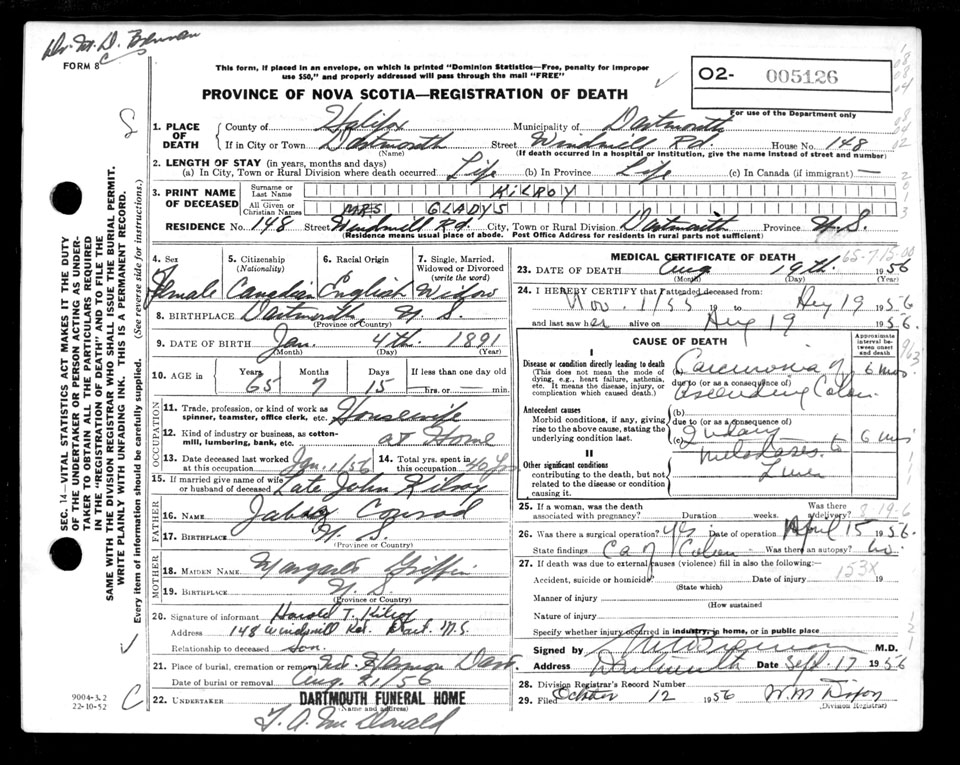 Dr. M. D. Brennan
FORM 8
This form, if placed in an envelope, on which is printed "Dominion Statistics—Free, penalty for improper
use $50," and properly addressed will pass through the mail "FREE"
PROVINCE OF NOVA SCOTIA—REGISTRATION OF DEATH
O2- 005126
For use of the Department only
SEC. 14—VITAL STATISTICS ACT MAKES IT THE DUTY
OF THE UNDERTAKER OR PERSON ACTING AS UNDER-
TAKER TO OBTAIN ALL THE PARTICULARS REQUIRED
IN THE "REGISTRATION OF DEATH" AND TO FILE THE
SAME WITH THE DIVISION REGISTRAR WHO SHALL ISSUE THE BURIAL PERMIT.
WRITE PLAINLY WITH UNFADING INK. THIS IS A PERMANENT RECORD.
Every item of information should be carefully supplied. (See reverse side for instructions.)
1. PLACE OF DEATH
County of Halifax Municipality of Dartmouth
If in City or Town Dartmouth Street Windmill Rd. House No. 148
(Name) (If death occurred in a hospital or institution, give the name instead of street and number)
2. LENGTH OF STAY (in years, months and days)
(a) In City, Town or Rural Division where death occurred Life (b) In Province Life (c) In Canada (if immigrant) —
3. PRINT NAME OF DECEASED
Surname or Last Name KILROY
All Given or Christian Names MRS GLADYS
RESIDENCE No. 148 Street Windmill Rd. City, Town or Rural Division Dartmouth Province N.S.
(Residence means usual place of abode. Post Office Address for residents in rural parts not sufficient)
4. Sex Female
5. Citizenship (Nationality) Canadian
6. Racial Origin English
7. Single, Married, Widowed or Divorced (write the word) Widow
8. BIRTHPLACE Dartmouth, N.S.
(Province or Country)
9. DATE OF BIRTH Jan. 4th. 1891
(Month) (Day) (Year)
10. AGE in Years 65 Months 7 Days 15 If less than one day old
hrs. or min.
OCCUPATION
11. Trade, profession, or kind of work as
spinner, teamster, office clerk, etc. Housewife
12. Kind of industry or business, as cotton-
mill, lumbering, bank, etc. at Home
13. Date deceased last worked at this occupation Jan. 1/56
14. Total yrs. spent in this occupation 40 yrs
15. If married give name of wife
or husband of deceased Late John Kilroy
FATHER
16. NAME Conrad
17. BIRTHPLACE N.S.
(Province or Country)
MOTHER
18. MAIDEN NAME Margaret Griffin
19. BIRTHPLACE N.S.
(Province or Country)
20. Signature of informant Harold T. Kilroy
Address 148 Windmill Rd. Dart. N.S.
Relationship to deceased Son.
21. Place of burial, cremation or removal Dart.
Date of burial or removal Aug. 21/56
22. UNDERTAKER DARTMOUTH FUNERAL HOME
(Name and address)
McDonald
9004-3.2
22-10-52
MEDICAL CERTIFICATE OF DEATH
65-7-15-00
23. DATE OF DEATH Aug 19th. 1956
(Month) (Day) (Year)
24. I HEREBY CERTIFY that I attended deceased from:
Nov. 1/55 19 to Aug 19 1956
and last saw her alive on Aug 19 1956.
CAUSE OF DEATH
Approximate interval between onset and death
I
Disease or condition directly leading to death
(This does not mean the mode of
dying, e.g., heart failure, asthenia,
etc. It means the disease, injury, or
complication which caused death.)
(a) Carcinoma of 6 mos
due to (or as a consequence of)
Ascending Colon
Antecedent causes
Morbid conditions, if any, giving
rise to the above cause, stating the
underlying condition last.
(b)
due to (or as a consequence of)
(c)
metastases to 6 mos
Liver
II
Other significant conditions
contributing to the death, but not
related to the disease or condition
causing it.
25. If a woman, was the death
associated with pregnancy? Duration weeks. Was there a delivery?
26. Was there a surgical operation? yes Date of operation April 15 1956
State findings Ca of Colon Was there an autopsy? no.
27. If death was due to external causes (violence) fill in also the following:
Accident, suicide or homicide? Date of injury 19
153X
(State which)
Manner of injury
(How sustained
Nature of injury
Specify whether injury occurred in industry, in home, or in public place
Signed by M.D.
Address Dartmouth Date Sept. 17 1956
28. Division Registrar's Record Number
29. Filed October 12 1956 W.M. Dixon
(Division Registrar)